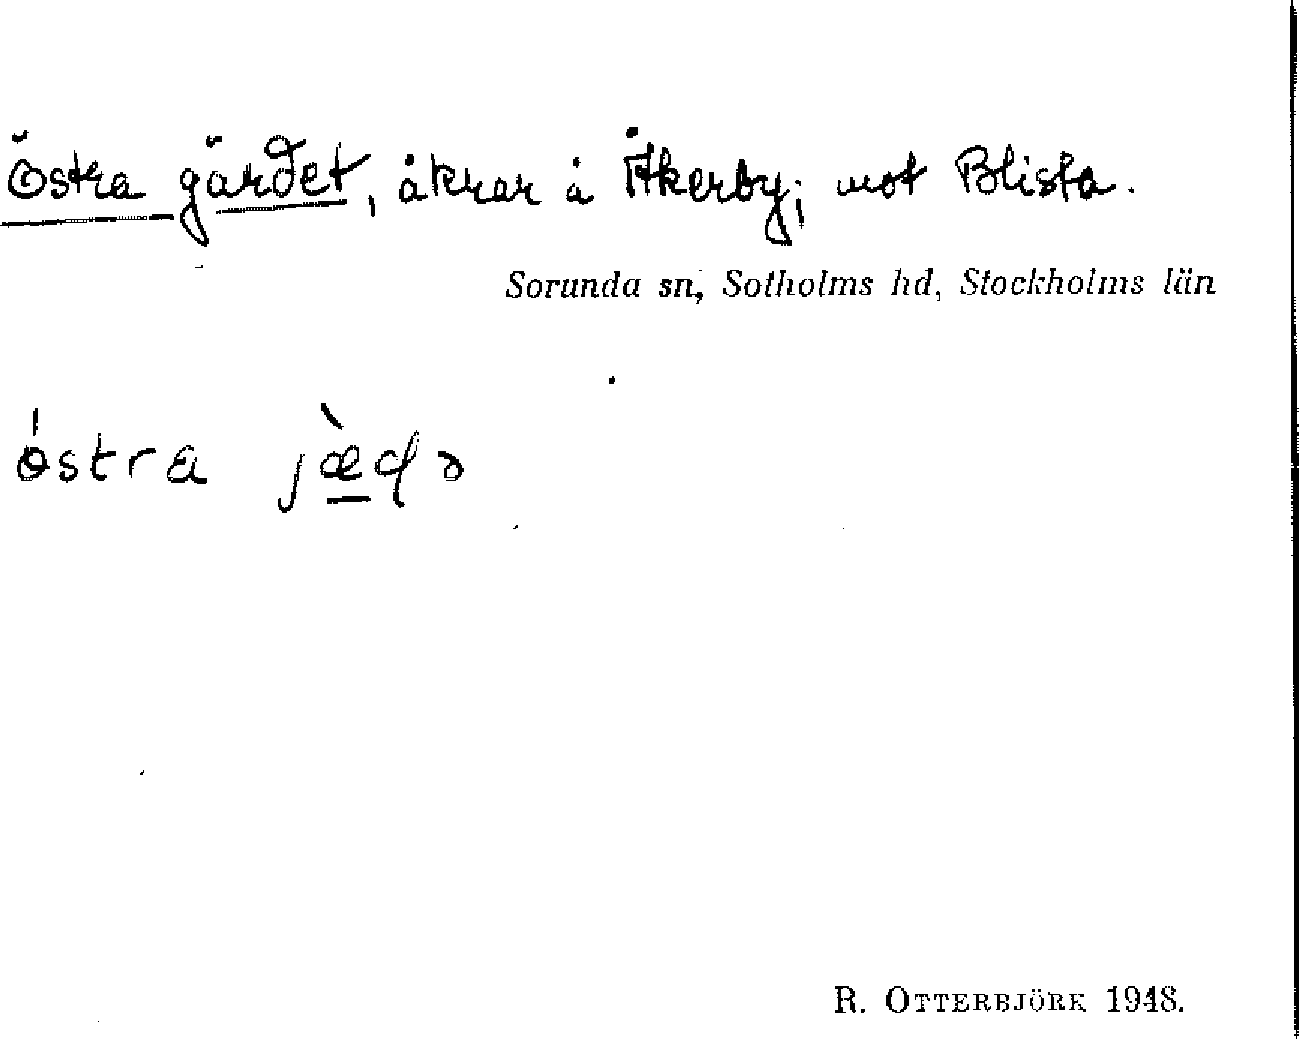 östra gärdet, åkrar å Åkerby; mot Blista.
Sorunda sn, Sotholms hd, Stockholms län
östra jæ̀ɖə
R. OTTERBJÖRK 1948.